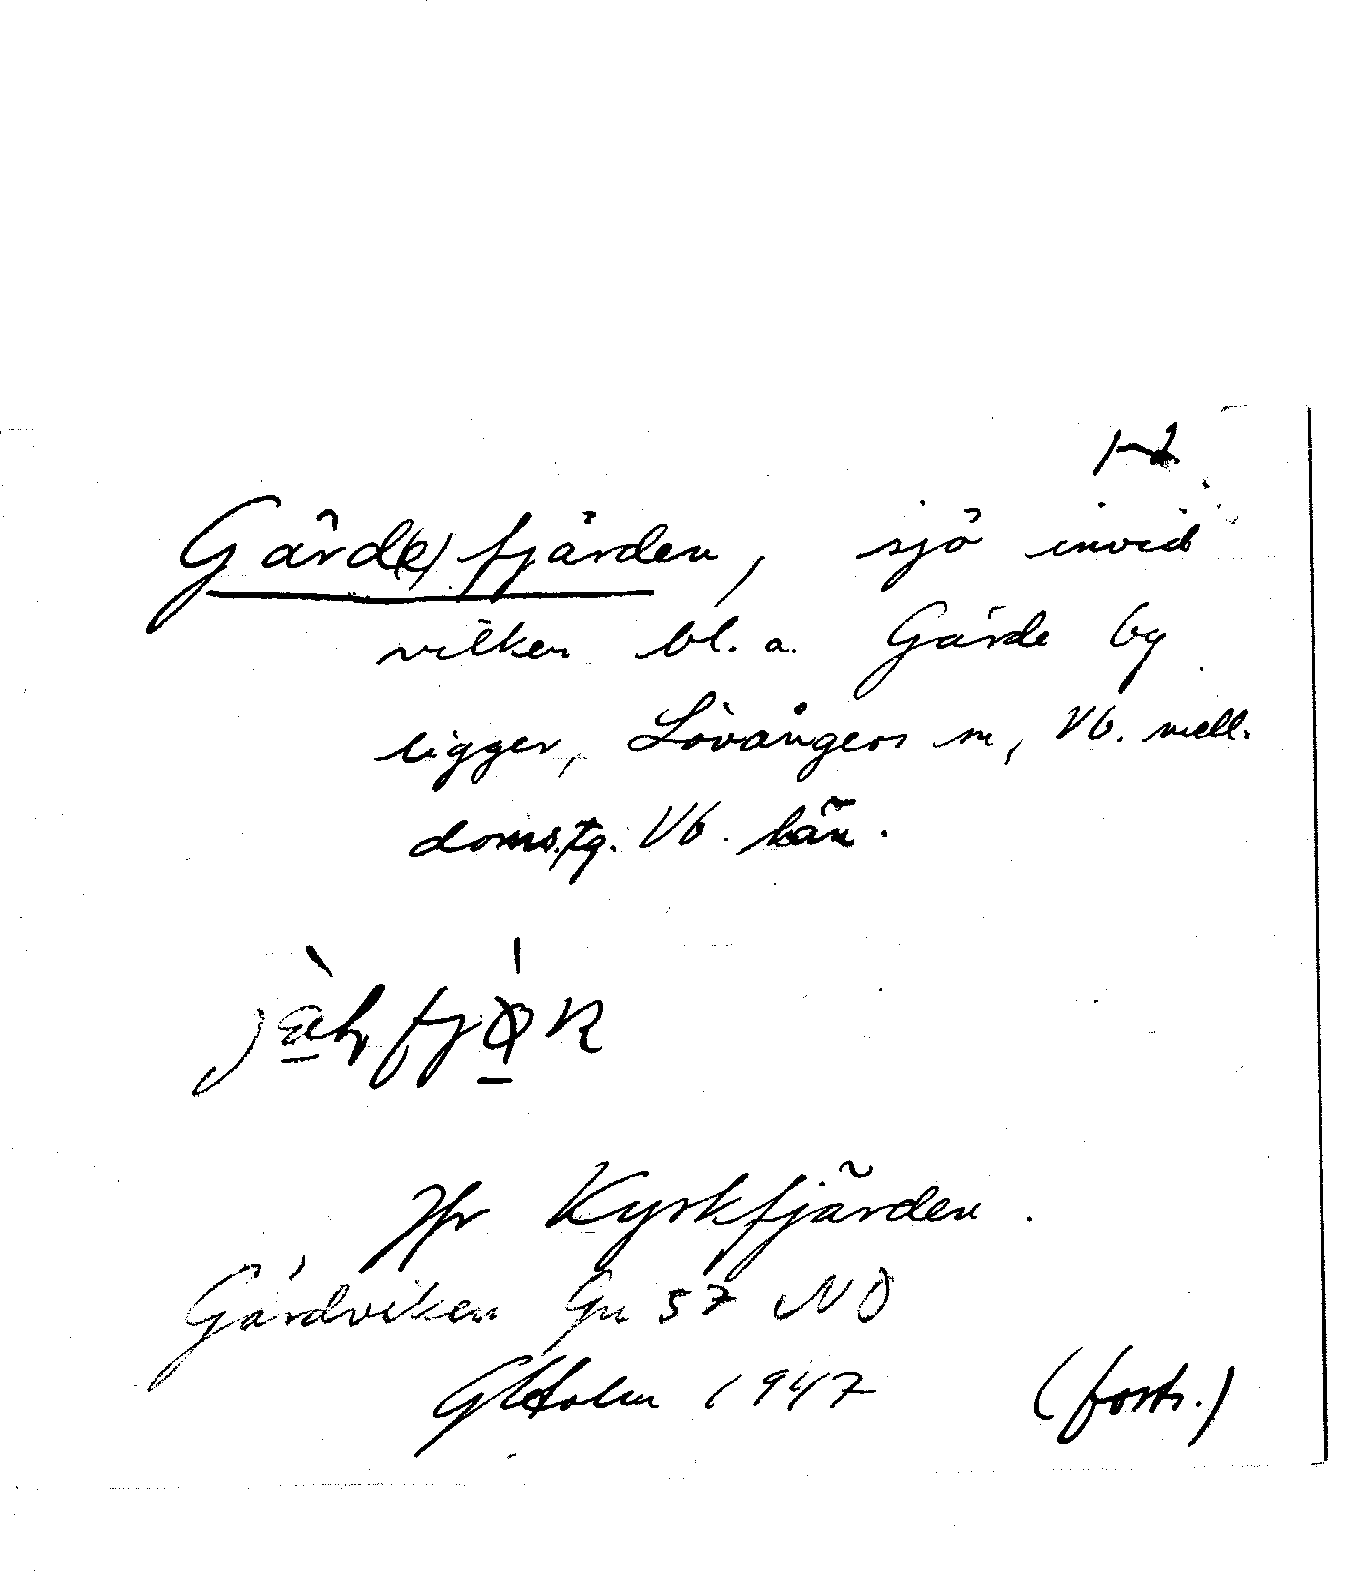 1-2
Gärd(e)fjärden, sjö invid
vilken bl. a. Gärde by
ligger, Lövångers sn, Vb. mell.
doms.tg. Vb. län.
Jfr Kyrkfjärden.
Gärdviken Gu 57 NO
G Holm 1947 (forts.)